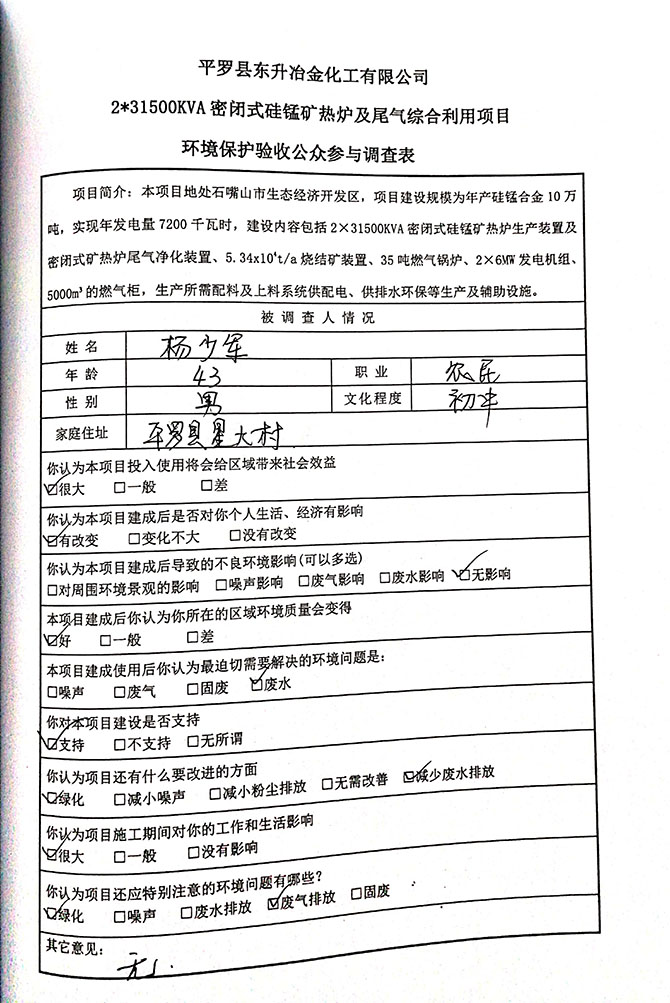 平罗县东升冶金化工有限公司
2*31500KVA 密闭式硅锰矿热炉及尾气综合利用项目
环境保护验收公众参与调查表
项目简介：本项目地处石嘴山市生态经济开发区，项目建设规模为年产硅锰合金 10 万
吨，实现年发电量 7200 千瓦时，建设内容包括 2×31500KVA 密闭式硅锰矿热炉生产装置及
密闭式矿热炉尾气净化装置、5.34x10⁴t/a 烧结矿装置、35 吨燃气锅炉、2×6MW 发电机组、
5000m³ 的燃气柜，生产所需配料及上料系统供配电、供排水环保等生产及辅助设施。
被调查人情况
姓名 杨少军
年龄 43 职业 农民
性别 男 文化程度 初中
家庭住址 平罗县星火村
你认为本项目投入使用将会给区域带来社会效益
☑很大 □一般 □差
你认为本项目建成后是否对你个人生活、经济有影响
☑有改变 □变化不大 □没有改变
你认为本项目建成后导致的不良环境影响(可以多选)
□对周围环境景观的影响 □噪声影响 □废气影响 □废水影响 ☑无影响
本项目建成后你认为你所在的区域环境质量会变得
☑好 □一般 □差
本项目建成使用后你认为最迫切需要解决的环境问题是：
□噪声 □废气 □固废 ☑废水
你对本项目建设是否支持
☑支持 □不支持 □无所谓
你认为项目还有什么要改进的方面
☑绿化 □减小噪声 □减小粉尘排放 □无需改善 ☑减少废水排放
你认为项目施工期间对你的工作和生活影响
☑很大 □一般 □没有影响
你认为项目还应特别注意的环境问题有哪些？
☑绿化 □噪声 □废水排放 ☑废气排放 □固废
其它意见：
无.